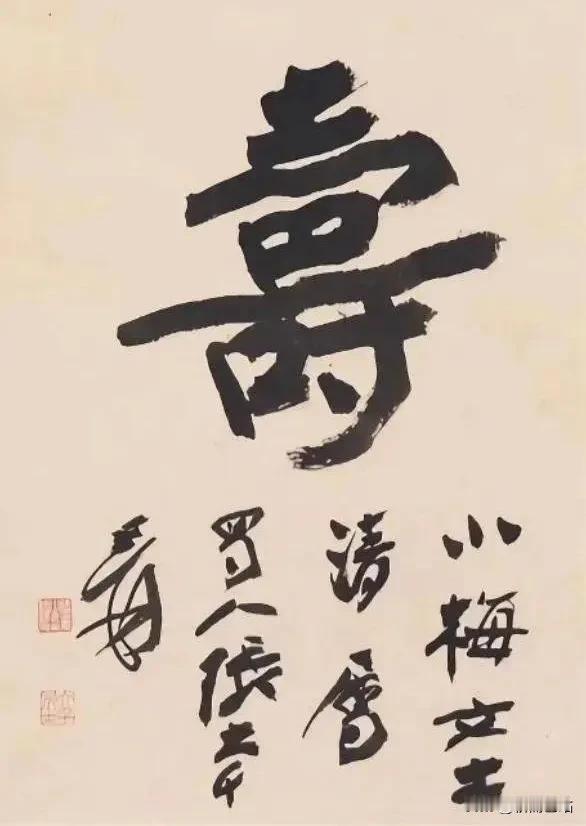 壽
小梅女士
清屬
蜀人張大千
爰